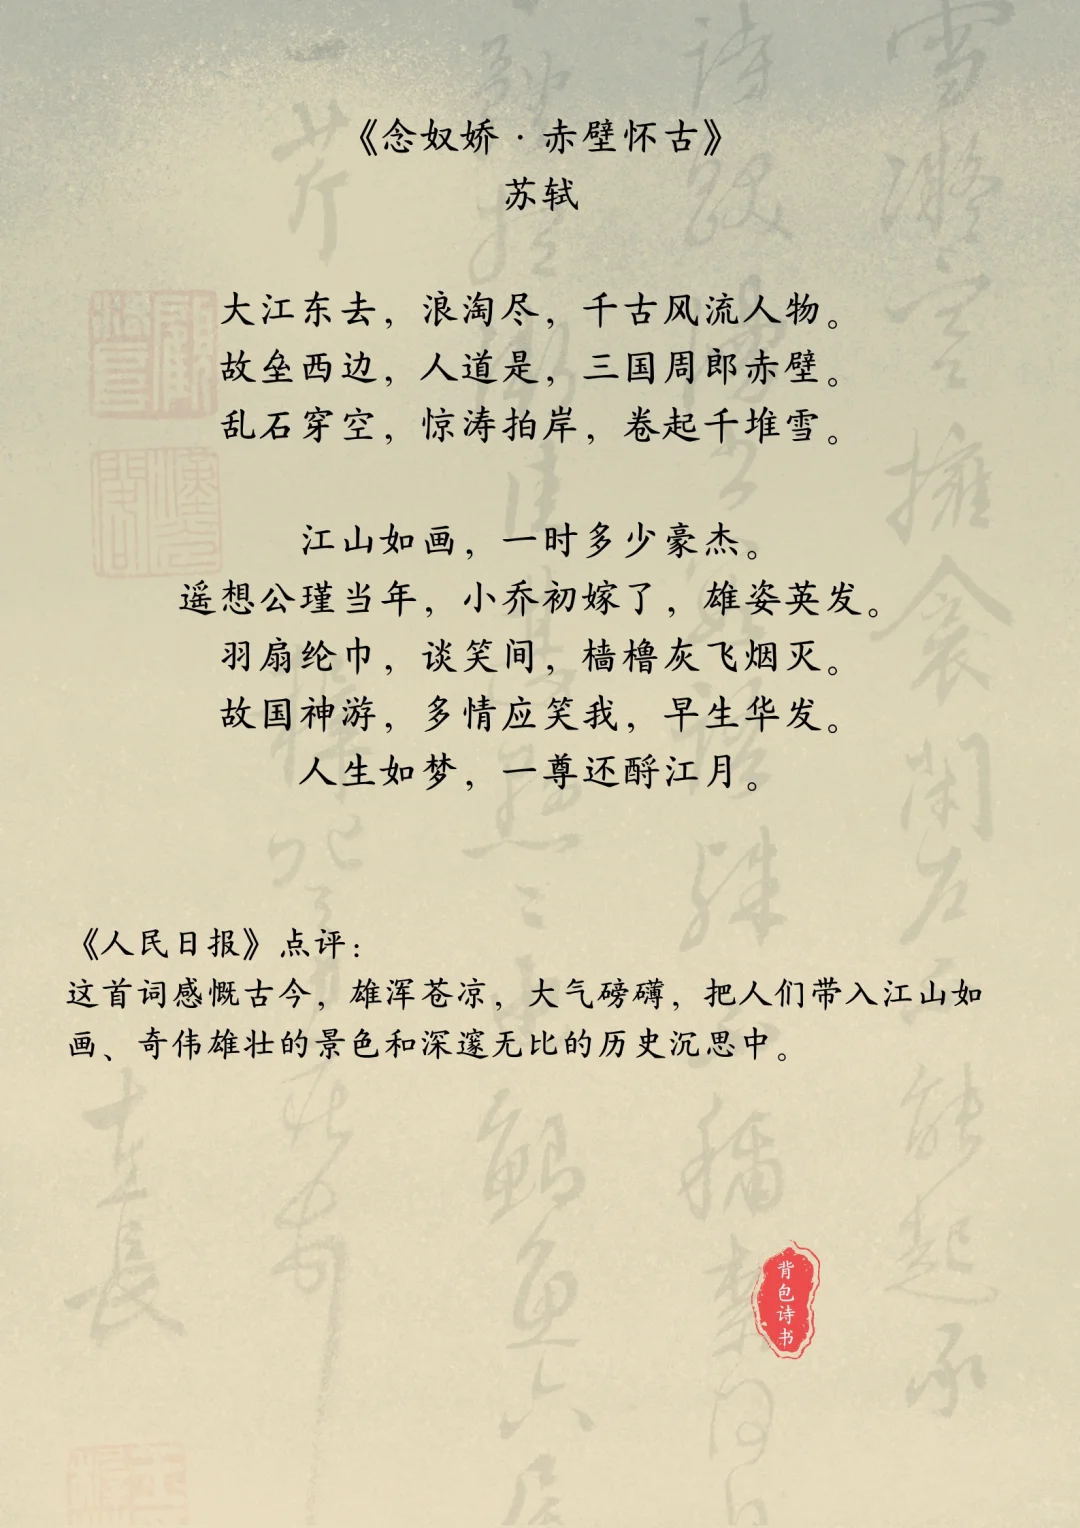 《念奴娇·赤壁怀古》
苏轼
大江东去，浪淘尽，千古风流人物。
故垒西边，人道是，三国周郎赤壁。
乱石穿空，惊涛拍岸，卷起千堆雪。
江山如画，一时多少豪杰。
遥想公瑾当年，小乔初嫁了，雄姿英发。
羽扇纶巾，谈笑间，樯橹灰飞烟灭。
故国神游，多情应笑我，早生华发。
人生如梦，一尊还酹江月。
《人民日报》点评：
这首词感慨古今，雄浑苍凉，大气磅礴，把人们带入江山如
画、奇伟雄壮的景色和深邃无比的历史沉思中。
背包诗书